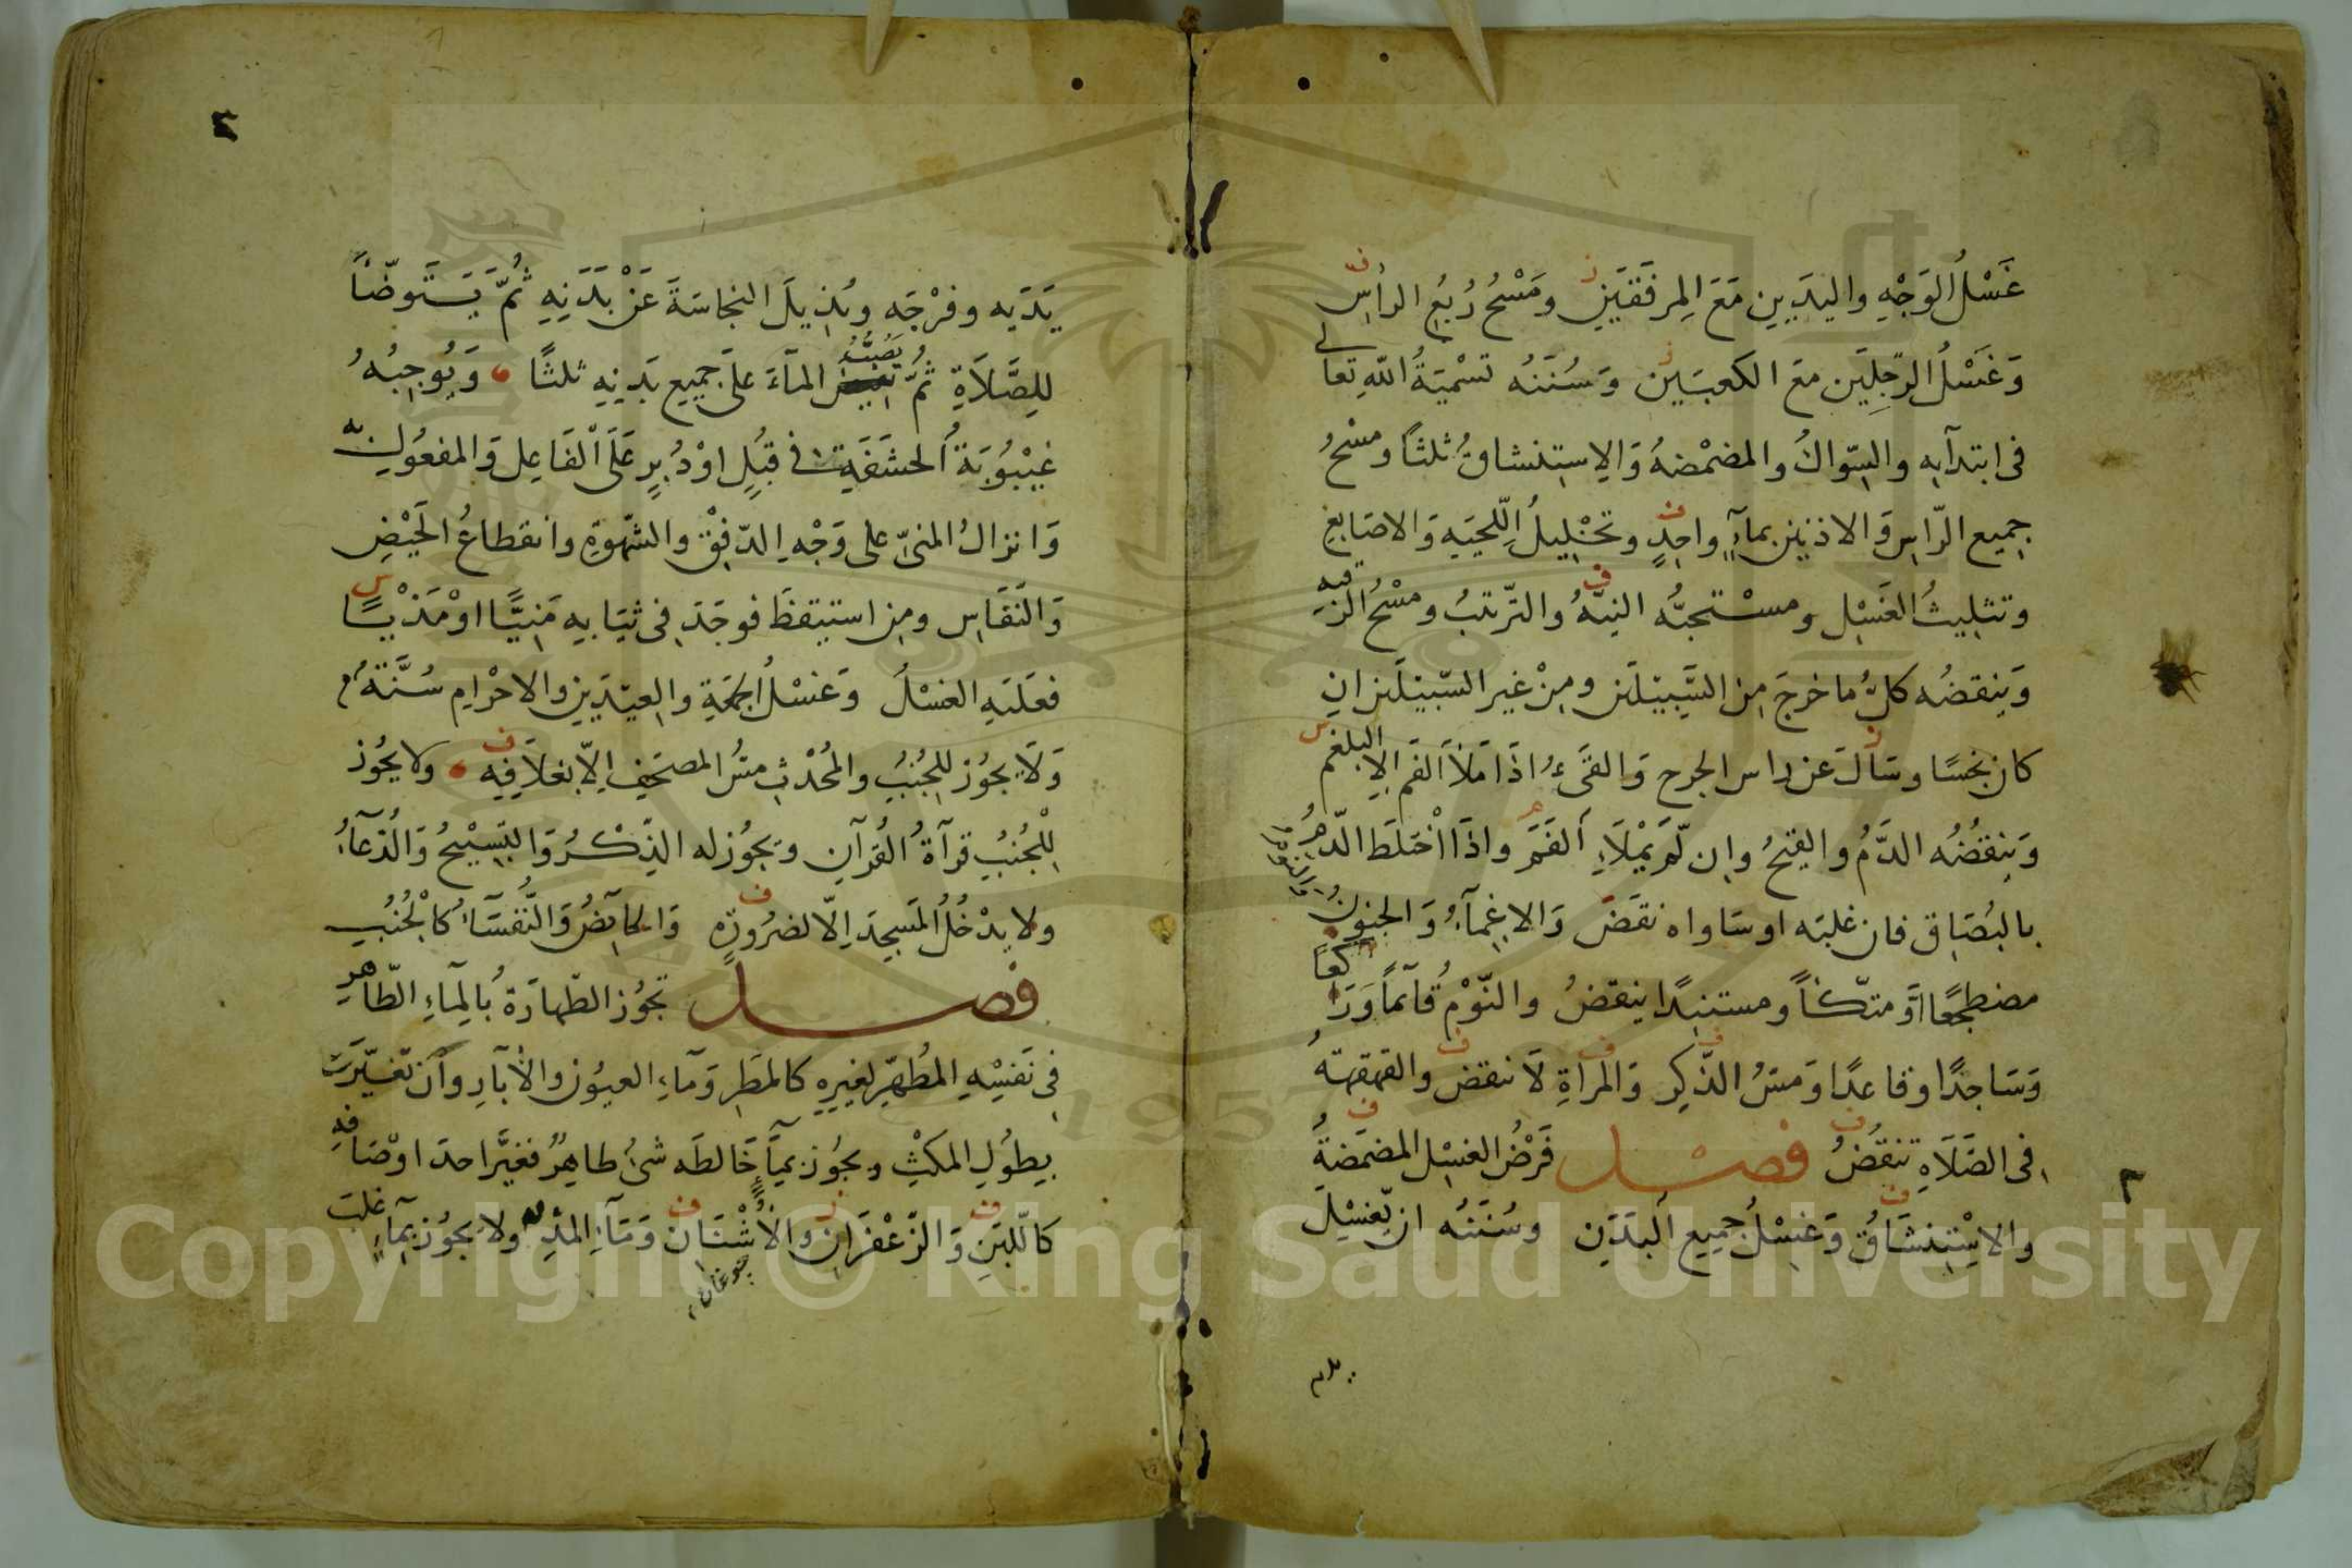 غَسْلُ الوَجْهِ واليدَيينِ مَعَ المِرفَقَيَنِ ومَسْحُ رُبعِ الرأسِ
وَغَسْلُ الرّجلَين معَ الكعبَين وَسُنَنُه تسْمِيَةُ اللهِ تعالى
فى ابتدآيه والسّواكُ والمضمْضهُ وَالاِستِنشاقُ ثلثًا ومسْحُ
جميع الرّاسِ وَالاذنينِ بمآءٍ واحِدٍ وتخْليلُ اللّحيَهِ وَالاصَابِعِ
وتثلِيثُ الغَسْلِ ومستحبُّه النيّهُ والتّرتبُ ومسْحُ الرّقبهِ
وَينقضُه كلُّ ما خرجَ مِن السَّبيَلَين ومِنْ غيرِ السّبيَلَين ان
كان نجسًا وسَالَ عن راس الجرح وَالقَىءُ اذَا مَلأَ الفَم الا البلغم
وَينقُضُه الدَّمُ والقيحُ وان لّم يَمْلاَءِ الفَمَ واذَا اخْتلَطَ الدّمُ
بالبُصَاق فان غلبَه اوسَاواه نقَضَ وَالاِغِمآءُ وَالجنونُ والنوم
مضطجعًا اوْ متكئاً ومستنِدًا ينقضُ والنّوْمُ قآئماً وَرَاكعًا
وَسَاجدًا وقاعدًا وَمسُ الذّكِر وَالمَراةِ لَا تنقض والقهقهةُ
فى الصَّلَاهِ تنقضُ فصْل فَرْضُ الغسْلِ المضمَضةُ
والاِسْتِنشَاقُ وَغسْلُ جميع اَلبَدَنِ وسُنَنُه ان يّغسْلِ
يديه
يَدَيَه وفرْجَه ويُزيلَ النجاسَةَ عَنْ بَدَنِهِ ثُمَّ يَتَوضّأً
للِصَّلَاةِ ثُمَّ يَصُبُّ المآءَ علَى جَميعِ بَدنِهِ ثلثًا وَيُوجِبُهُ
غَيْبُوبَةُ الحشَفَةِ فى قبُلٍ اوْ دُبرٍ عَلَى الْفَاعِل وَالمفعُولِ به
وَانزالُ المنىّ على وَجْهِ الدّفقِ والشّهوَةِ وانقطاعُ الحَيْضِ
وَالنفَاسِ ومِن استيقظَ فوجَدَ فى ثيَابِهِ مَنيًّا اوْ مَذْيًا
فعَلَيهِ الغسْلُ وَغسْلُ الجُمعَةِ والعيدَينِ والاحْرامِ سُنّةٌ
وَلَا يجوُز للِجُنُبِ والمحُدْثِ مسُّ المصحَفِ اِلّا بغلاَفِهِ ولا يجُوز
لِلْجُنُبِ قرآةُ القُرآنِ ويَجُوز له الذِّكرُ وَالتّسِبْيحُ وَالدُعآءُ
ولا يدْخُلُ المَسجِدَ اِلّا لضرُورةٍ وَالحآيَضُ وَالنُّفسَآءُ كالْجُنُبِ
فصل تجُوُز الطّهارَةُ بالمآءِ الطّاهرِ
فى نَفسِْهِ المُطَهّرِ لغيرِهِ كالمَطَرِ وَمآءِ العيُون والاٰبآرِ وانْ تغيَّرَتْ
بطُولِ المكثِ ويجُوز بمآءٍ خَالطَه شئٌ طاهِرٌ فغيَّر احدَ اوْصَافهِ
كاللبَنِ وَالزّعْفَرَانِ والأُشْنَان وَمَآءِ المَدِّ ولَا يجوُز بمآءٍ غلبَ